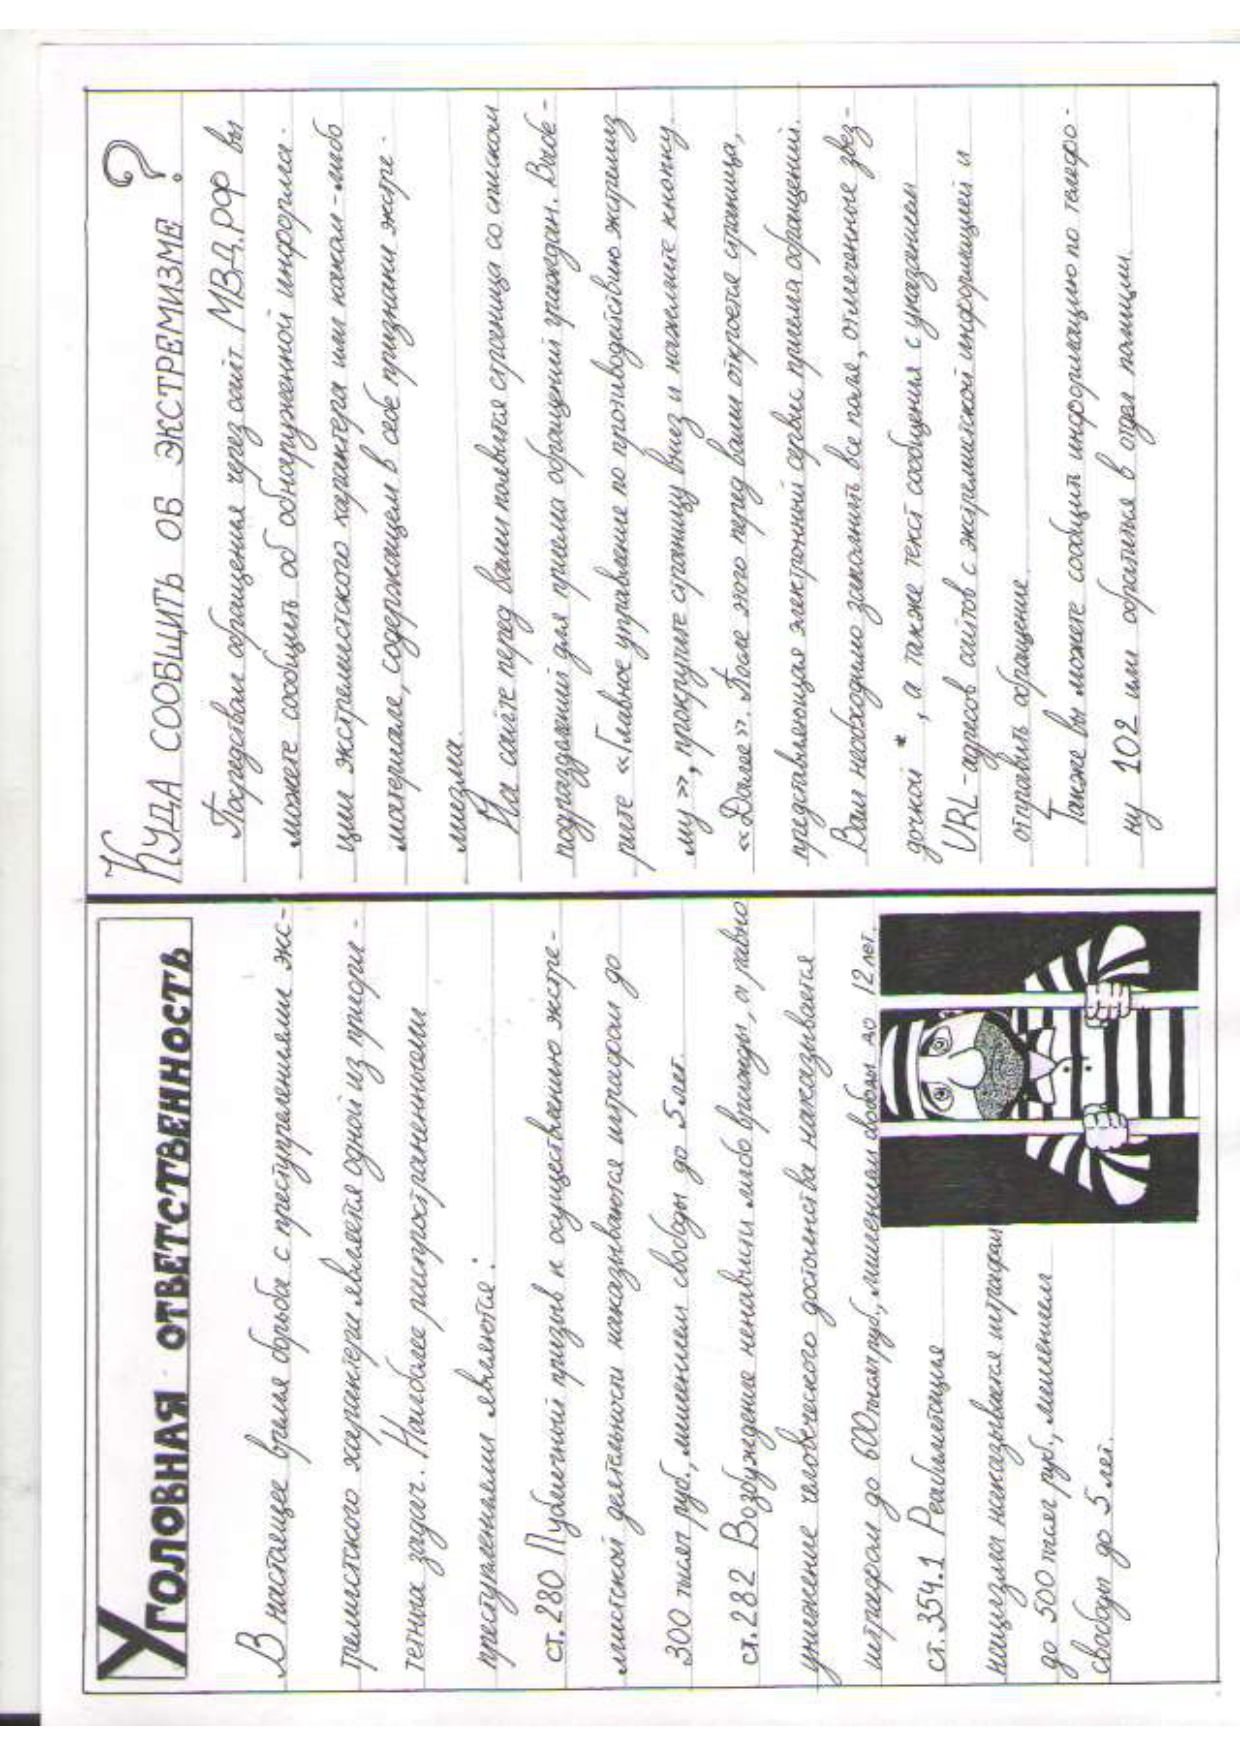 УГОЛОВНАЯ ОТВЕТСТВЕННОСТЬ
В настоящее время борьба с преступлениями экс-
тремистского характера является одной из приори-
тетных задач. Наиболее распространенными
преступлениями являются:
ст. 280 Публичный призыв к осуществлению экстре-
мистской деятельности наказываются штрафом до
300 тысяч руб., лишением свободы до 5 лет.
ст. 282 Возбуждение ненависти либо вражды, а равно
унижение человеческого достоинства наказывается
штрафом до 600 тысяч руб., лишением свободы до 12 лет.
ст. 354.1 Реабилитация
нацизма наказывается штрафом
до 500 тысяч руб., лишением
свободы до 5 лет.
КУДА СООБЩИТЬ ОБ ЭКСТРЕМИЗМЕ ?
Посредствам обращения через сайт МВД.РФ вы
можете сообщить об обнаруженной информа-
ции экстремистского характера или каком-либо
материале, содержащем в себе признаки экстре-
мизма.
На сайте перед вами появится страница со списком
подразделений для приема обращений граждан. Выбе-
рите «Главное управление по противодействию экстремиз
му», прокрутите страницу вниз и нажмите кнопку
«Далее». После этого перед вами откроется страница,
представляющая электронный сервис приема обращений.
Вам необходимо заполнить все поля, отмеченные звез-
дочкой *, а также текст сообщения с указанием
URL-адресов сайтов с экстремисткой информацией и
отправить обращение.
Также вы можете сообщить информацию по телефо-
ну 102 или обратиться в отдел полиции.